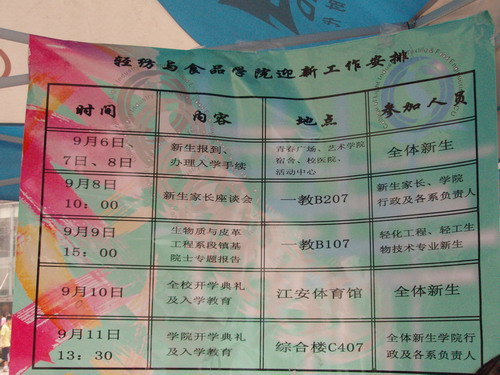 轻纺与食品学院迎新工作安排
时间 内容 地点 参加人员
9月6日、
7日、8日
新生报到、
办理入学手续
青春广场、艺术学院
宿舍、校医院、
活动中心
全体新生
9月8日
10：00
新生家长座谈会
一教B207
新生家长、学院
行政及各系负责人
9月9日
15：00
生物质与皮革
工程系段镇基
院士专题报告
一教B107
轻化工程、轻工生
物技术专业新生
9月10日
全校开学典礼
及入学教育
江安体育馆
全体新生
9月11日
13：30
学院开学典礼
及入学教育
综合楼C407
全体新生学院行
政及各系负责人